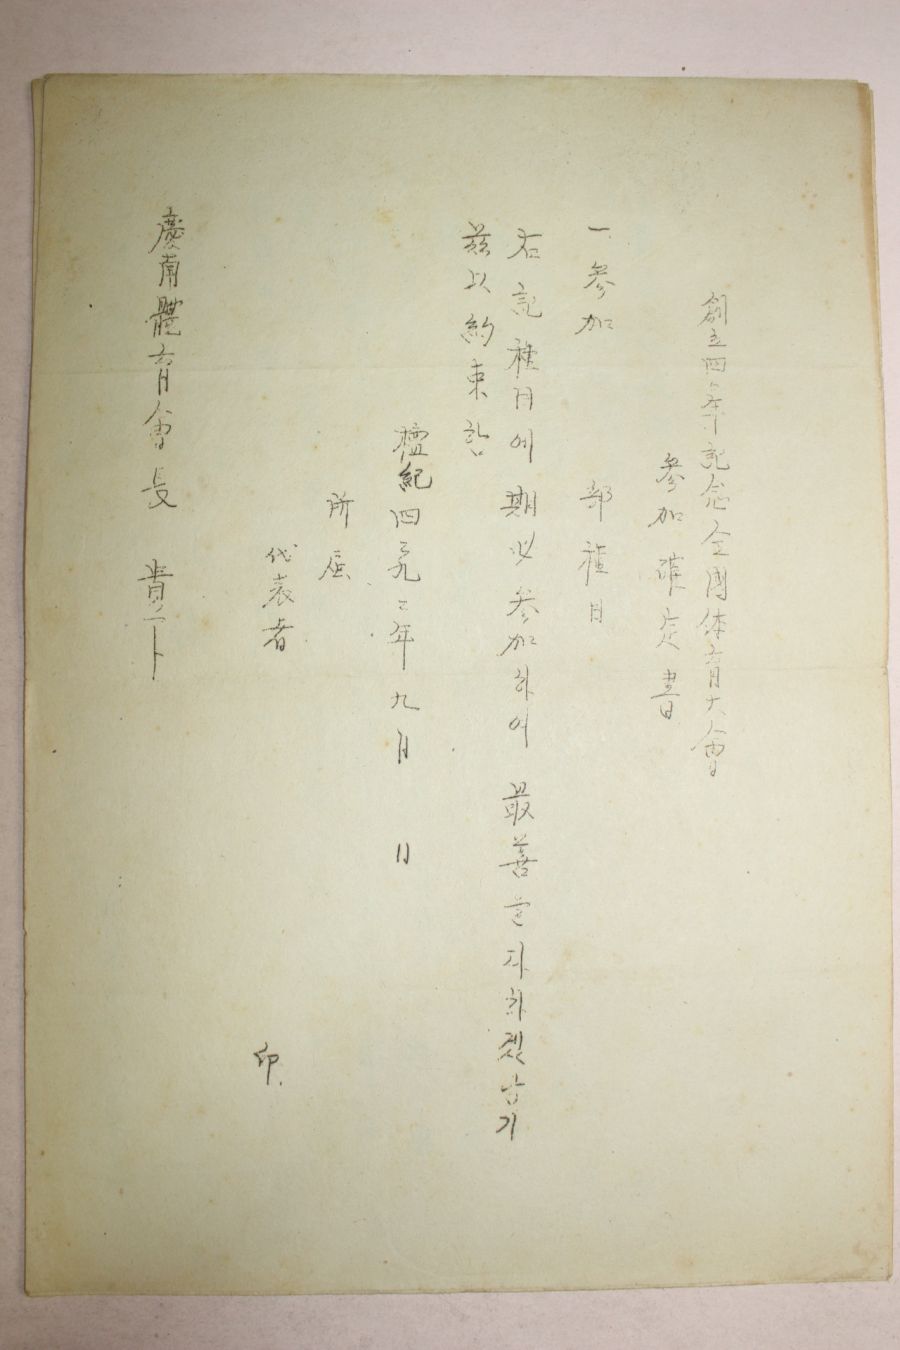 創立四年記念全國体育大會
參加確定書
一 參加 部種目
右記種目에 期必參加하여 最善을 다하겠삽기
玆以約束함
檀紀四二九二年 九月 日
所屬
代表者 印
慶南體育會長 貴下